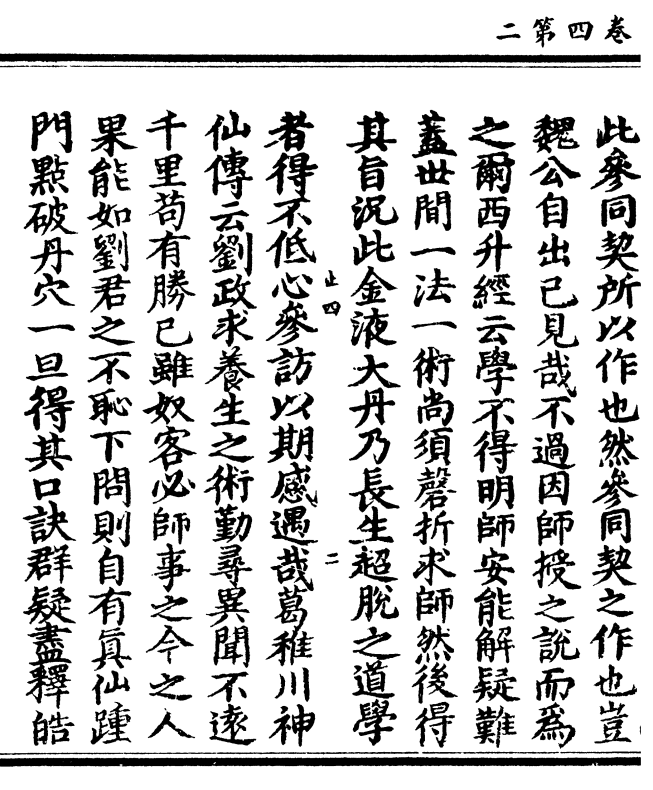 卷四第二
此參同契所以作也然參同契之作也豈
魏公自出己見哉不過因師授之說而爲
之爾西升經云學不得明師安能解疑難
蓋世間一法一術尚須磬折求師然後得
其旨況此金液大丹乃長生超脫之道學
止四
二
者得不低心參訪以期感遇哉葛稚川神
仙傳云劉政求養生之術勤尋異聞不遠
千里苟有勝己雖奴客必師事之今之人
果能如劉君之不恥下問則自有眞仙踵
門點破丹穴一旦得其口訣群疑盡釋皓